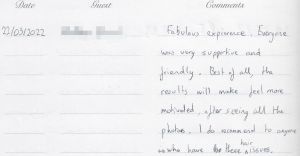 Date Guest Comments
22/03/2022 Fabulous experience. Everyone
was very supportive and
friendly. Best of all, the
results will make feel more
motivated, after seeing all the
photos. I do recommend to anyone
who have hair issues,